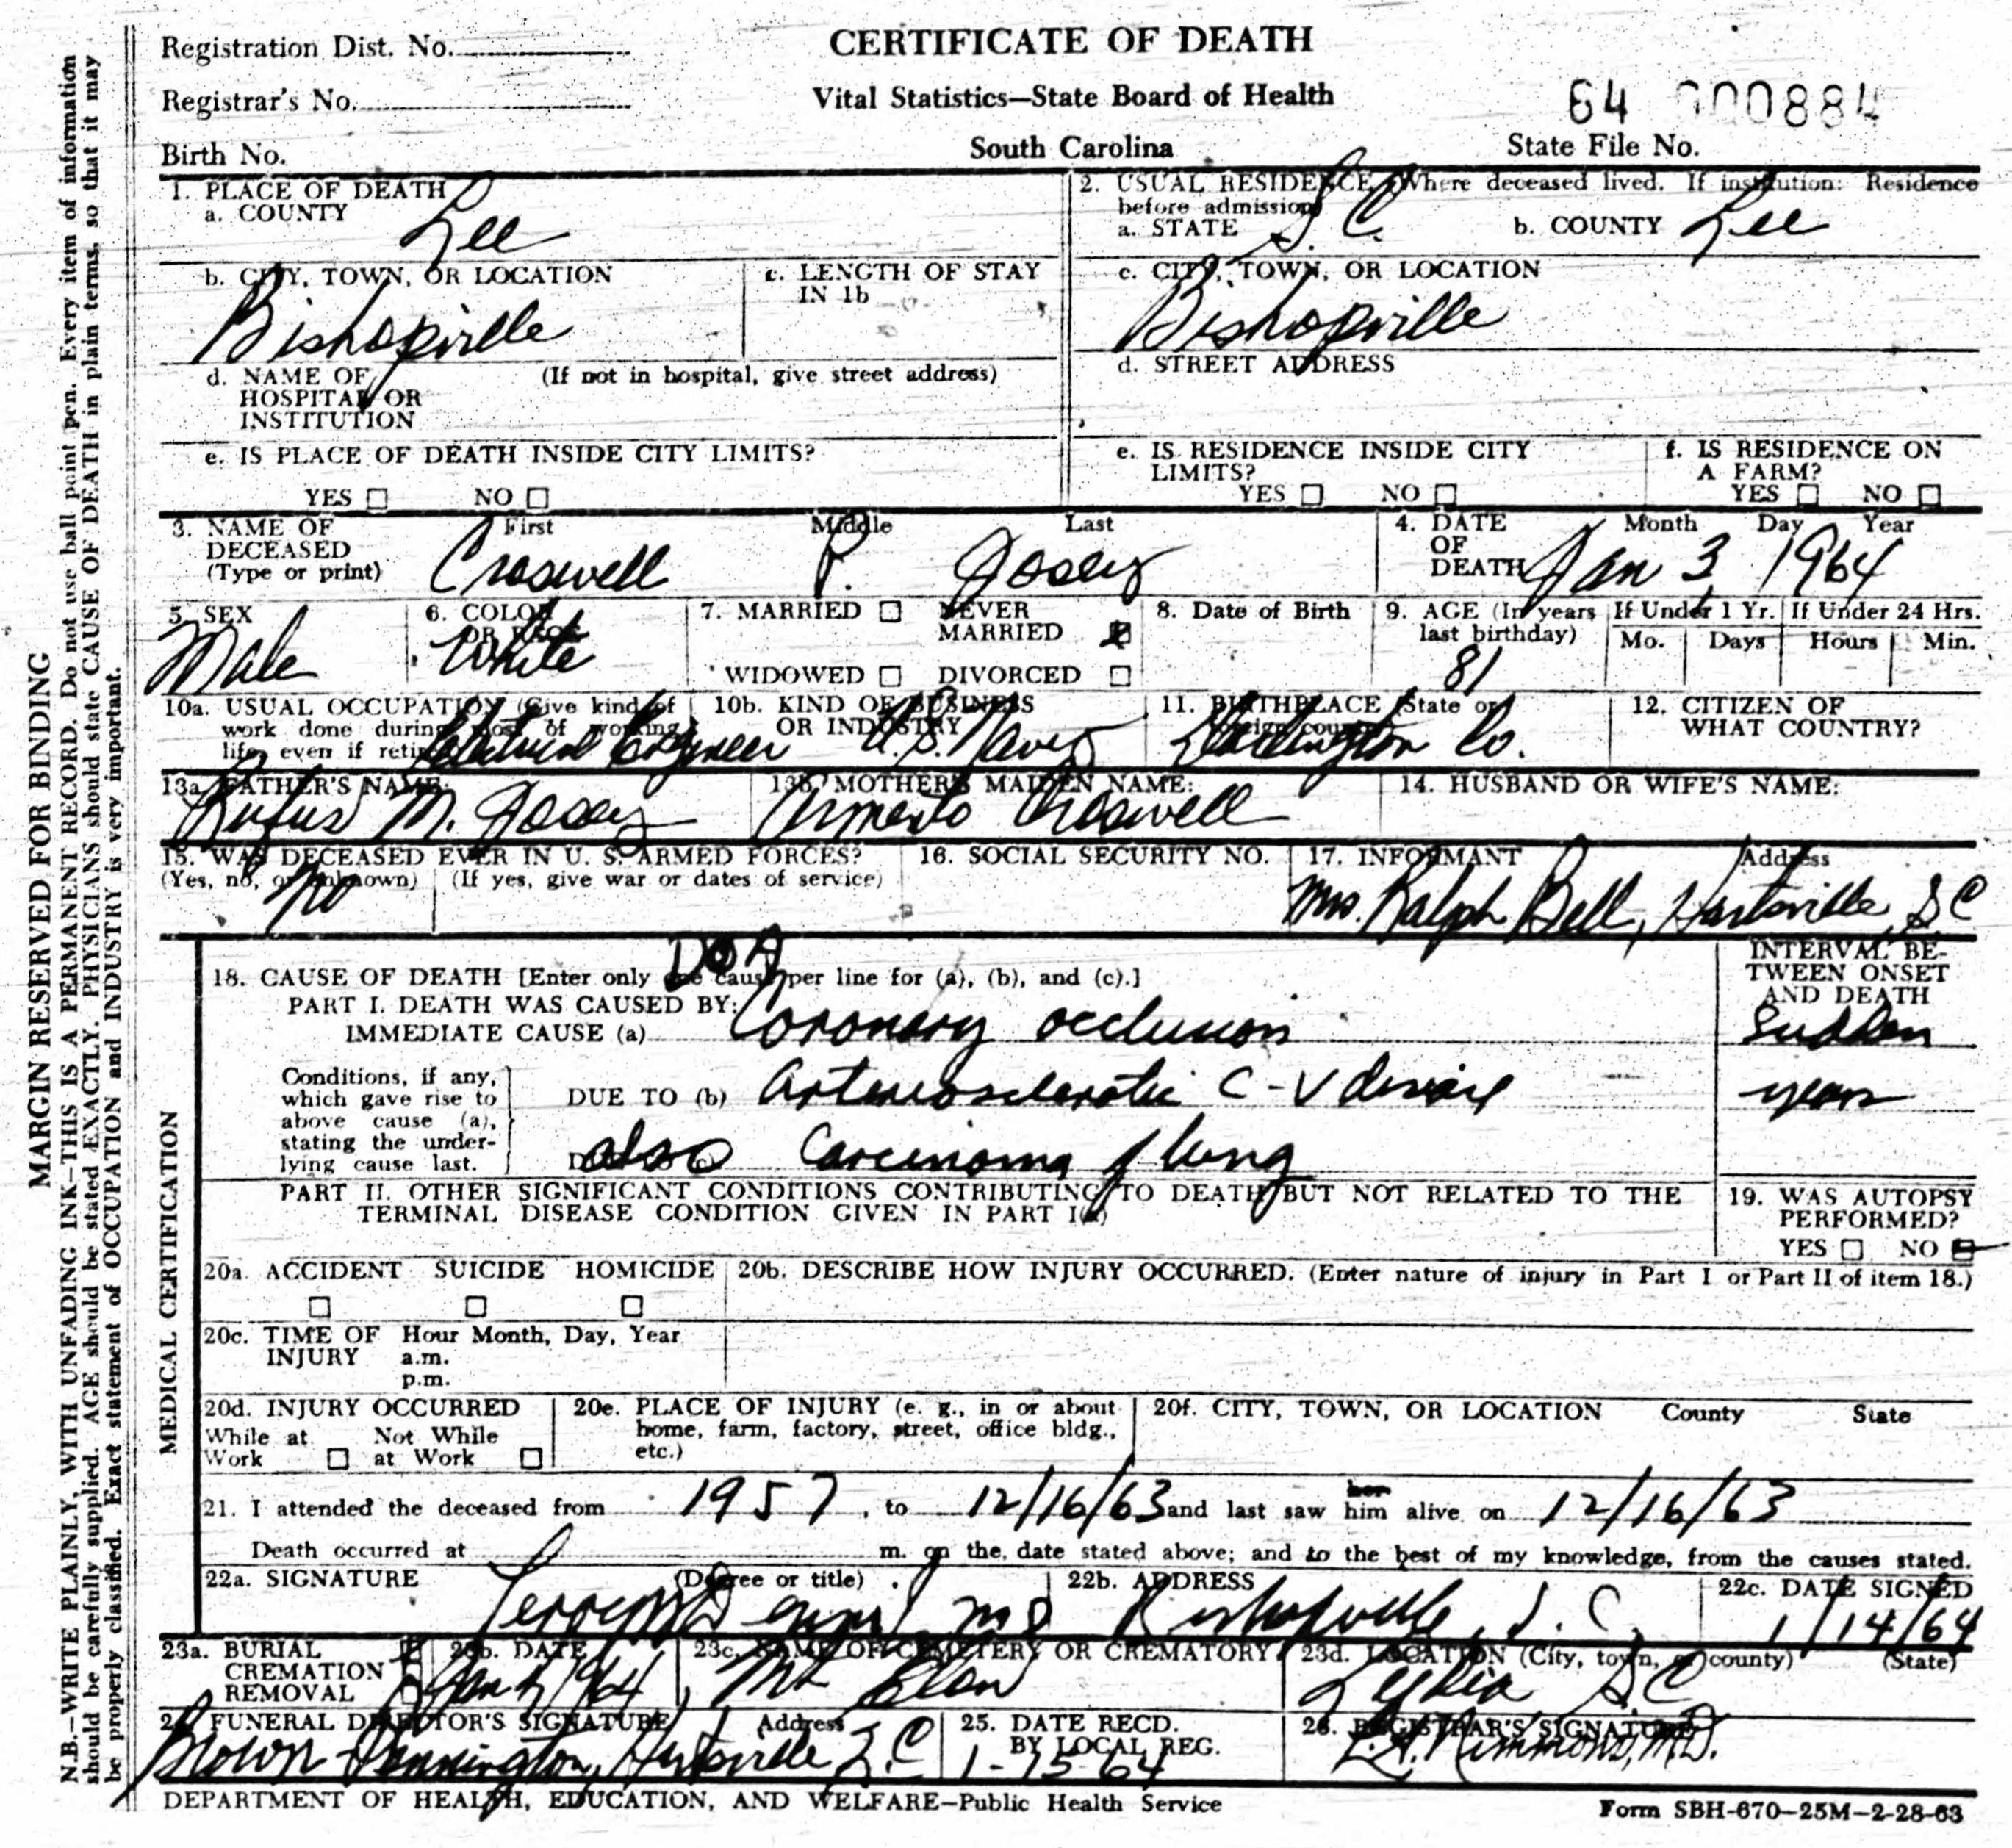 Registration Dist. No.
CERTIFICATE OF DEATH
Registrar's No.
Vital Statistics—State Board of Health
64 000884
Birth No.
South Carolina
State File No.
MARGIN RESERVED FOR BINDING
N.B.—WRITE PLAINLY, WITH UNFADING INK—THIS IS A PERMANENT RECORD. Do not use ball point pen. Every item of information
should be carefully supplied. AGE should be stated EXACTLY. PHYSICIANS should state CAUSE OF DEATH in plain terms, so that it may
be properly classified. Exact statement of OCCUPATION and INDUSTRY is very important.
1. PLACE OF DEATH
a. COUNTY
Lee
2. USUAL RESIDENCE (Where deceased lived. If institution: Residence
before admission)
a. STATE S.C.
b. COUNTY Lee
b. CITY, TOWN, OR LOCATION
Bishopville
c. LENGTH OF STAY
IN 1b
c. CITY, TOWN, OR LOCATION
Bishopville
d. NAME OF (If not in hospital, give street address)
HOSPITAL OR
INSTITUTION
d. STREET ADDRESS
e. IS PLACE OF DEATH INSIDE CITY LIMITS?
YES NO
e. IS RESIDENCE INSIDE CITY
LIMITS?
YES NO
f. IS RESIDENCE ON
A FARM?
YES NO
3. NAME OF
DECEASED
(Type or print)
First Middle Last
Croswell P. Josey
4. DATE
OF
DEATH
Month Day Year
Jan 3, 1964
5. SEX
Male
6. COLOR
OR RACE
White
7. MARRIED NEVER
MARRIED
WIDOWED DIVORCED
8. Date of Birth
9. AGE (In years
last birthday)
81
If Under 1 Yr.
Mo. Days
If Under 24 Hrs.
Hours Min.
10a. USUAL OCCUPATION (Give kind of
work done during most of working
life, even if retired)
Electrical Engineer
10b. KIND OF BUSINESS
OR INDUSTRY
U.S. Navy
11. BIRTHPLACE (State or
foreign country)
Darlington Co.
12. CITIZEN OF
WHAT COUNTRY?
13a. FATHER'S NAME:
Rufus M. Josey
13b. MOTHER'S MAIDEN NAME:
Croswell
14. HUSBAND OR WIFE'S NAME:
15. WAS DECEASED EVER IN U. S. ARMED FORCES?
(Yes, no, or unknown) (If yes, give war or dates of service)
No
16. SOCIAL SECURITY NO.
17. INFORMANT Address
Mrs. Ralph Bell, Hartsville, S.C
MEDICAL CERTIFICATION
DOA
18. CAUSE OF DEATH [Enter only one cause per line for (a), (b), and (c).]
PART I. DEATH WAS CAUSED BY:
IMMEDIATE CAUSE (a) Coronary occlusion
INTERVAL BE-
TWEEN ONSET
AND DEATH
Sudden
Conditions, if any,
which gave rise to
above cause (a),
stating the under-
lying cause last.
DUE TO (b) Arteriosclerotic C-V disease
years
DUE TO (c) also Carcinoma of lung
PART II. OTHER SIGNIFICANT CONDITIONS CONTRIBUTING TO DEATH BUT NOT RELATED TO THE
TERMINAL DISEASE CONDITION GIVEN IN PART I(a)
19. WAS AUTOPSY
PERFORMED?
YES NO
20a. ACCIDENT SUICIDE HOMICIDE
20b. DESCRIBE HOW INJURY OCCURRED. (Enter nature of injury in Part I or Part II of item 18.)
20c. TIME OF Hour Month, Day, Year
INJURY a.m.
p.m.
20d. INJURY OCCURRED
While at Not While
Work at Work
20e. PLACE OF INJURY (e. g., in or about
home, farm, factory, street, office bldg.,
etc.)
20f. CITY, TOWN, OR LOCATION County State
21. I attended the deceased from 1957, to 12/16/63 and last saw her him alive on 12/16/63
Death occurred at m. on the date stated above; and to the best of my knowledge, from the causes stated.
22a. SIGNATURE (Degree or title)
MD
22b. ADDRESS
Bishopville, S.C.
22c. DATE SIGNED
1/14/64
23a. BURIAL
CREMATION
REMOVAL
23b. DATE
23c. NAME OF CEMETERY OR CREMATORY
Mt Elon
23d. LOCATION (City, town, or county) (State)
Lydia S.C
24. FUNERAL DIRECTOR'S SIGNATURE Address
Brown-Pennington, Hartsville S.C
25. DATE RECD.
BY LOCAL REG.
1-15-64
26. REGISTRAR'S SIGNATURE
M.D.
DEPARTMENT OF HEALTH, EDUCATION, AND WELFARE—Public Health Service
Form SBH-670-25M-2-28-63